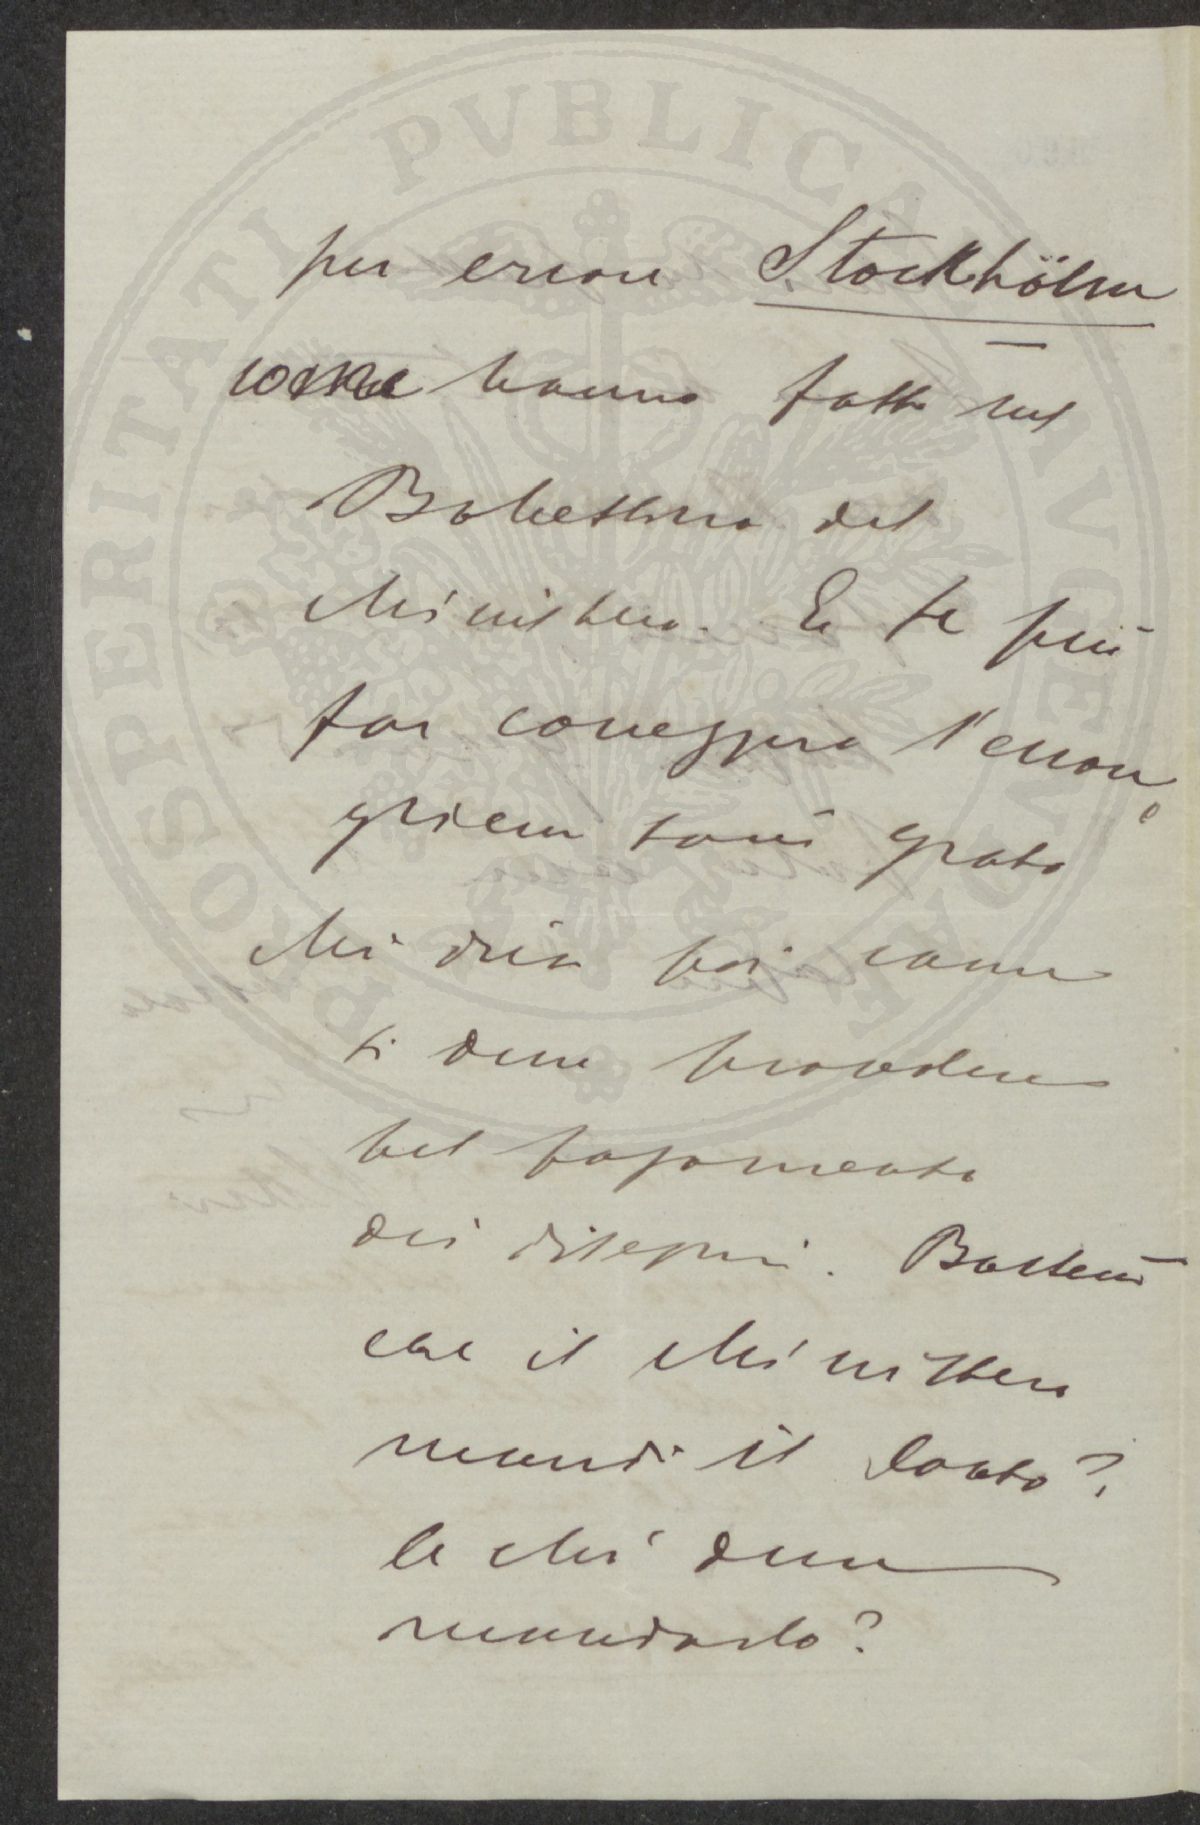 PROSPERITATI PVBLICAE AVGENDAE
per errore Stockhölm
come hanno fatto nel
Bollettino del
Ministero. E se può
far correggere l'errore,
gliene sarò grato
Mi dica poi come
si deve provvedere
pel pagamento
dei disegni. Basterà
che il Ministero
mandi il conto?
e chi deve
mandarlo?